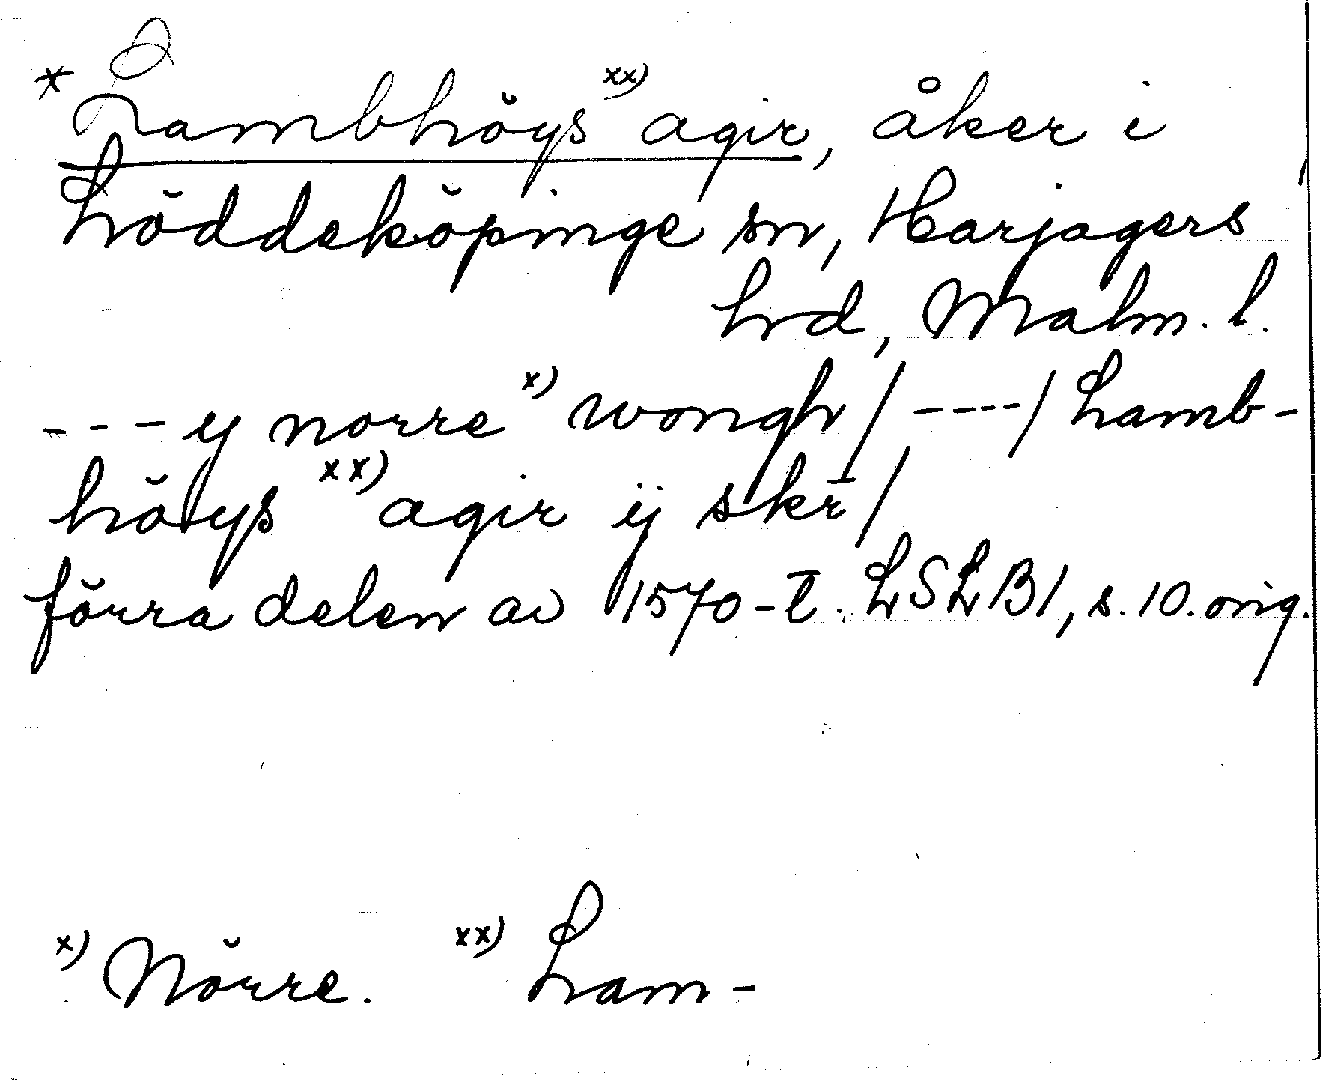 * Lambhöys xx) agir, åker i
Löddeköpinge sn, Harjagers
hrd, Malm. l.
- - - y norre x) wongh / - - - - / Lamb-
höys xx) agir ij skr̄ /
förra delen av 1570-t̄. LSLB1, s. 10. orig.
x) Nörre. xx) Lam-